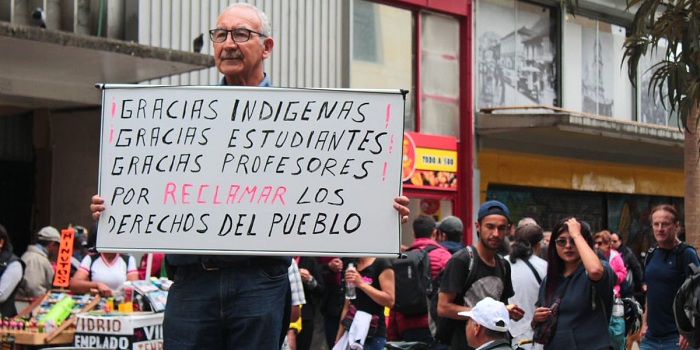 ¡GRACIAS INDIGENAS!
¡GRACIAS ESTUDIANTES!
GRACIAS PROFESORES!
POR RECLAMAR LOS
DERECHOS DEL PUEBLO
TODO A 500
MINUTOS
VIDRIO
EMPLADO